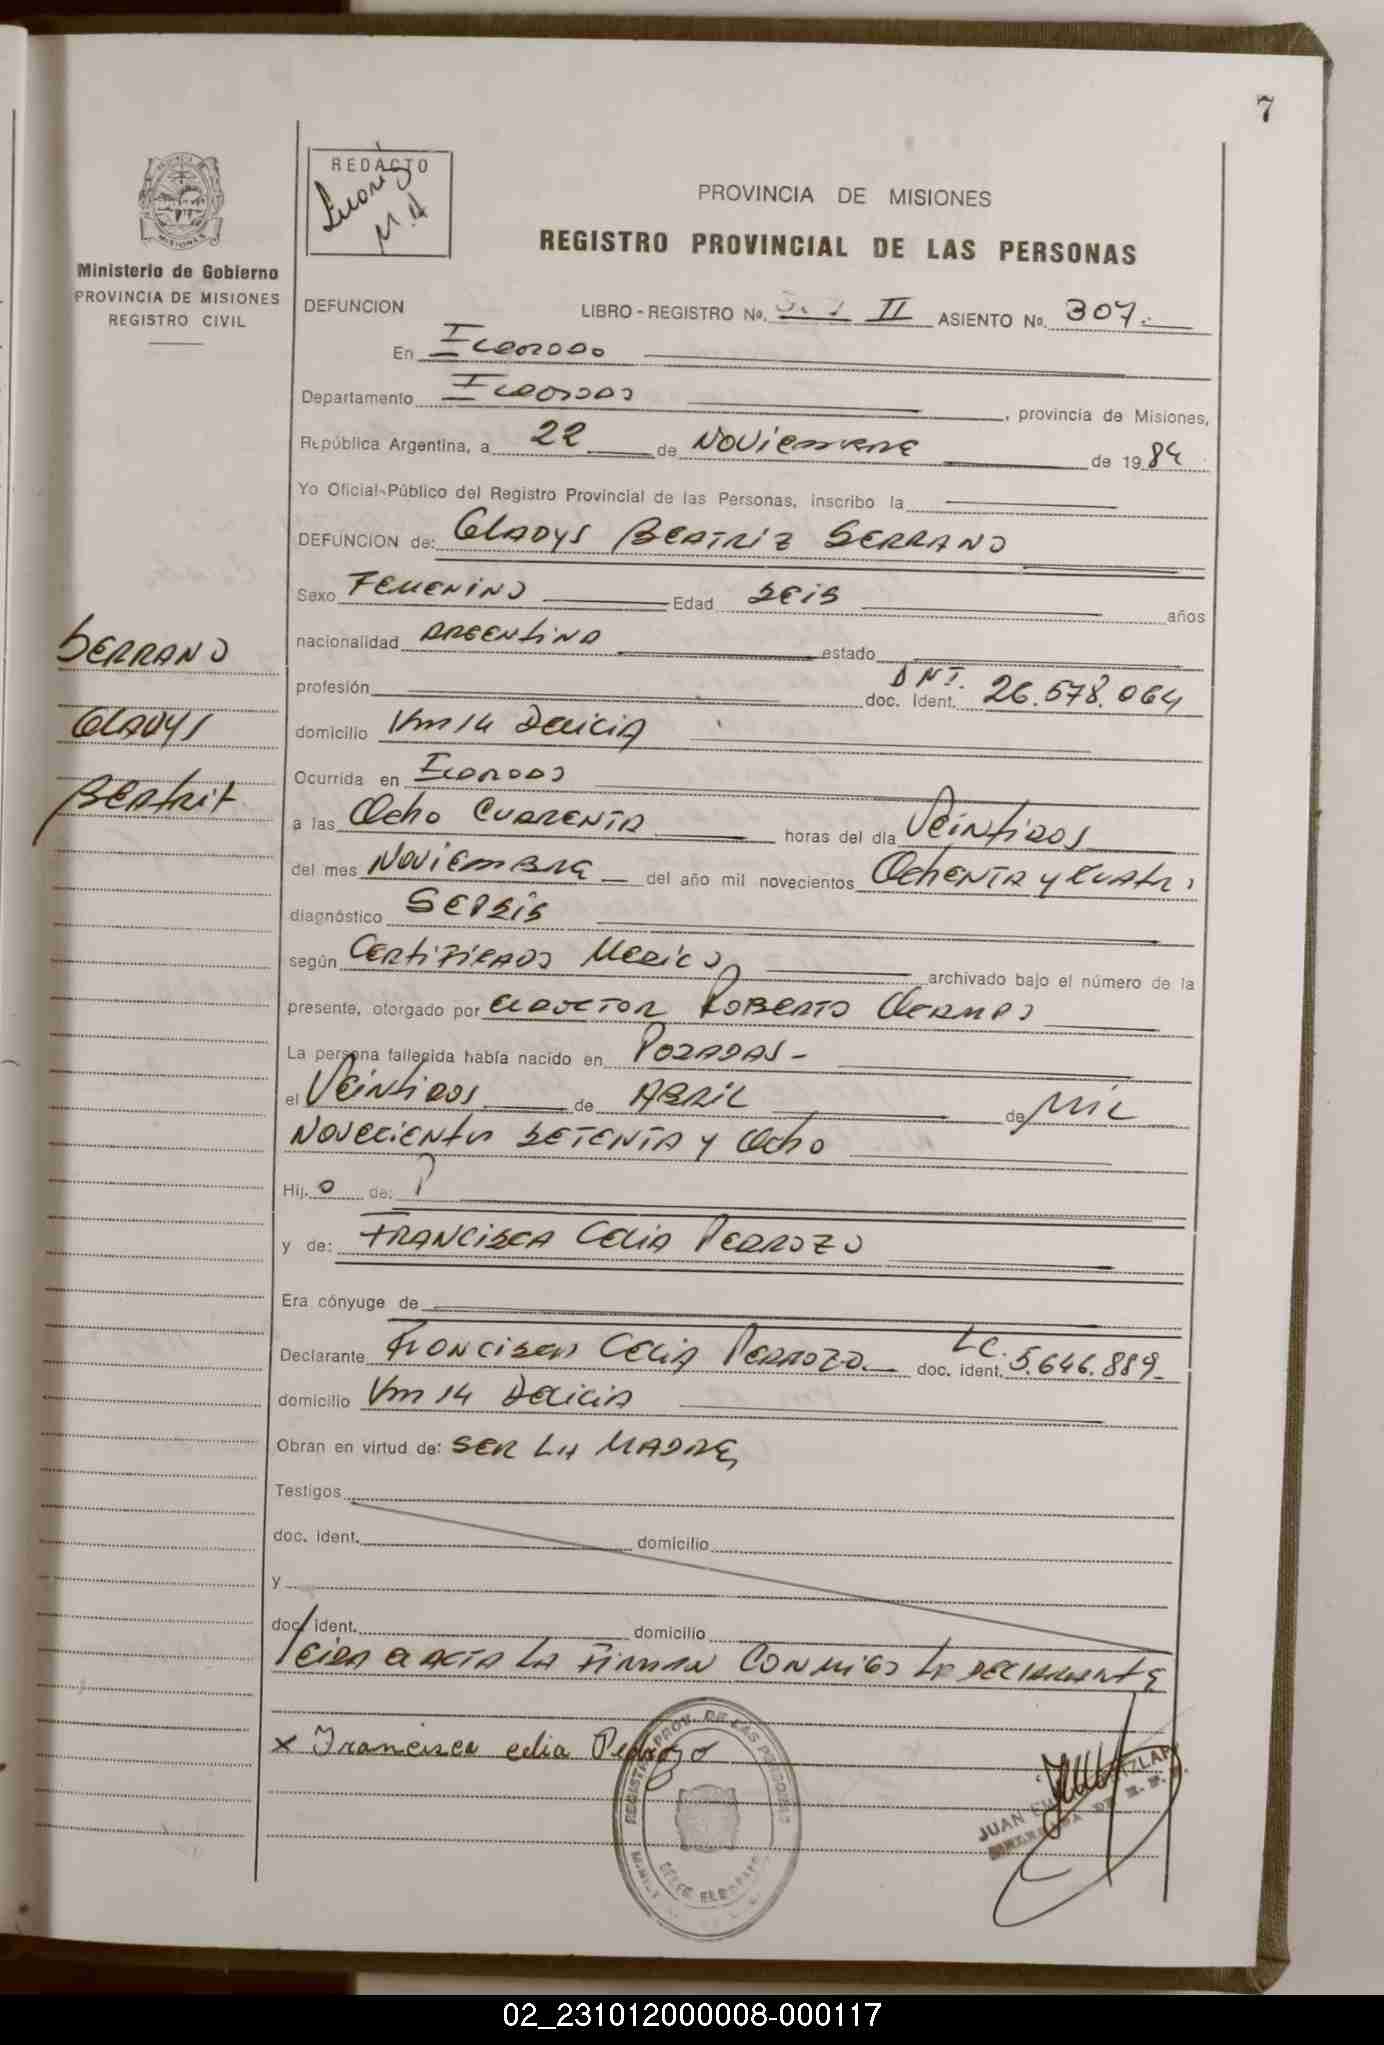 7
REDACTO
M.A
PROVINCIA DE MISIONES
REGISTRO PROVINCIAL DE LAS PERSONAS
Ministerio de Gobierno
PROVINCIA DE MISIONES
REGISTRO CIVIL
DEFUNCION LIBRO - REGISTRO Nº. II ASIENTO Nº. 307.
En
Departamento , provincia de Misiones,
República Argentina, a 22 de NOVIEMBRE de 1984
Yo Oficial-Público del Registro Provincial de las Personas, inscribo la
DEFUNCION de: GLADYS BEATRIZ SERRANO
Sexo FEMENINO Edad SEIS años
SERRANO
GLADYS
BEATRIZ
nacionalidad ARGENTINA estado
profesión doc. ident. DNI. 26.578.064
domicilio Km 14 DELICIA
Ocurrida en
a las Ocho CUARENTA horas del día VEINTIDOS
del mes NOVIEMBRE del año mil novecientos OCHENTA y CUATRO
diagnóstico SEPSIS
según CERTIFICADO MEDICO archivado bajo el número de la
presente, otorgado por EL DOCTOR ROBERTO
La persona fallecida había nacido en POSADAS -
el VEINTIDOS de ABRIL de MIL
NOVECIENTOS SETENTA Y OCHO
Hij. o de:
y de: FRANCISCA CELIA PEDROZO
Era cónyuge de
Declarante FRANCISCA CELIA PEDROZO doc. ident. LC. 5.646.889
domicilio Km 14 DELICIA
Obran en virtud de: SER LA MADRE
Testigos
doc. ident. domicilio
y
doc. ident. domicilio
LEIDA EL ACTA LA FIRMAN CONMIGO LA DECLARANTE
x Francisca celia Pedrozo
REGISTRO PROV. DE LAS PERSONAS
DELEG. ELDORADO
JUAN
02_231012000008-000117